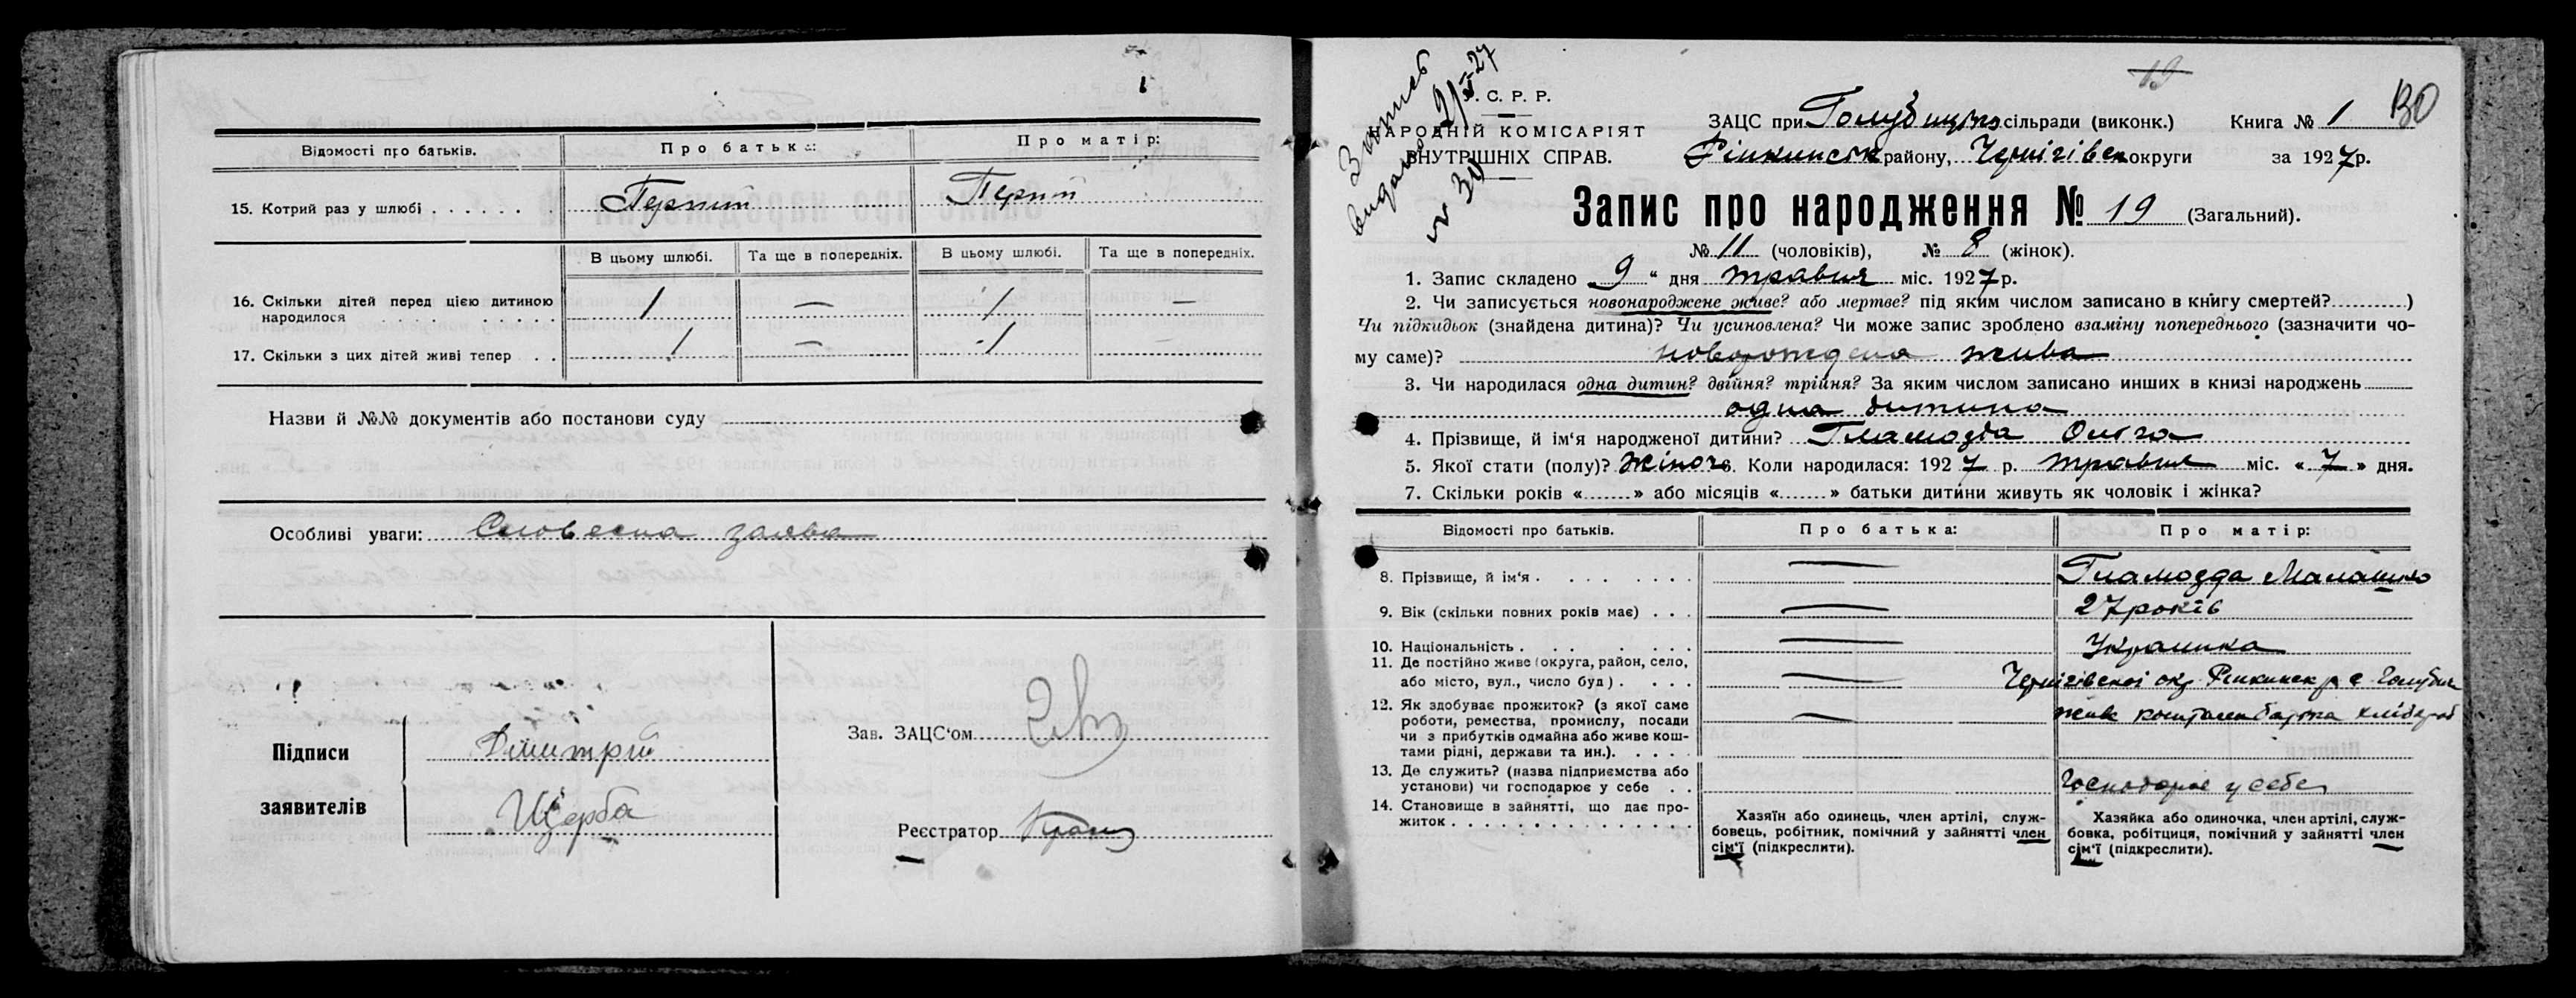 Відомості про батьків.
Про батька:
Про матір:
15. Котрий раз у шлюбі . . . . . . .
Перший
Перший
В цьому шлюбі.
Та ще в попередніх.
В цьому шлюбі.
Та ще в попередніх.
16. Скільки дітей перед цією дитиною
народилося . . . . . . . . .
1 — 1 —
17. Скільки з цих дітей живі тепер . .
1 — 1 —
Назви й №№ документів або постанови суду
Особливі уваги: Словесна заява
Підписи
заявителів
Дмитрій
Щерба
Зав. ЗАЦС'ом
Реєстратор
19
Витяг
видано 21/V-27
№ 30
У. С. Р. Р.
НАРОДНІЙ КОМІСАРІЯТ
ВНУТРІШНІХ СПРАВ.
ЗАЦС при сільради (виконк.) Книга № 1
Ріпкинськ району, Чернігівськ округи за 1927 р.
Запис про народження № 19 (Загальний).
№ 11 (чоловіків), № 8 (жінок).
1. Запис складено 9 “ дня травня міс. 1927 р.
2. Чи записується новонароджене живе? або мертве? під яким числом записано в книгу смертей?............)
Чи підкидьок (знайдена дитина)? Чи усиновлена? Чи може запис зроблено взаміну попереднього (зазначити чо-
му саме)? новорождена жива
3. Чи народилася одна дитин? двійня? трійня? За яким числом записано инших в книзі народжень
одна дитина
4. Прізвище, й ім'я народженої дитини? Гламозда Ольга
5. Якої стати (полу)? Жіноч 6. Коли народилася: 1927 р. травня міс. « 7 » дня.
7. Скільки років «.......» або місяців «.......» батьки дитини живуть як чоловік і жінка?
Відомості про батьків.
Про батька:
Про матір:
8. Прізвище, й ім'я . . . . . . . .
—
Гламозда
9. Вік (скільки повних років має) . . .
—
27 років
10. Національність . . . . . . .
—
Українка
11. Де постійно живе (округа, район, село,
або місто, вул., число буд) . . . .
—
Чернігівскої окр Ріпкинск р с Голубич
12. Як здобуває прожиток? (з якої саме
роботи, ремества, промислу, посади
чи з прибутків одмайна або живе кош-
тами рідні, держави та ин.) . . . .
—
живе коштами батька хлібороб
13. Де служить? (назва підприємства або
установи) чи господарює у себе . .
Господарює у себе
14. Становище в зайнятті, що дає про-
житок . . . . . . . . . . . . . . .
Хазяїн або одинець, член артілі, служ-
бовець, робітник, помічний у зайнятті член
сім'ї (підкреслити).
Хазяйка або одиночка, член артілі, служ-
бовка, робітциця, помічний у зайнятті член
сім'ї (підкреслити).